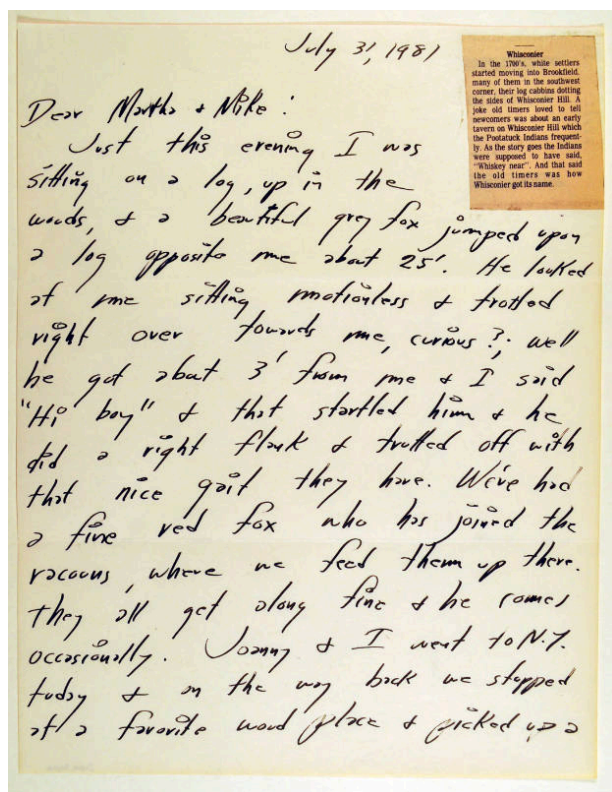 July 31, 1981
Whisconier
In the 1700's, white settlers
started moving into Brookfield,
many of them in the southwest
corner, their log cabbins dotting
the sides of Whisconier Hill. A
joke old timers loved to tell
newcomers was about an early
tavern on Whisconier Hill which
the Pootatuck Indians frequent-
ly. As the story goes the Indians
were supposed to have said,
"Whiskey near". And that said
the old timers was how
Whisconier got its name.
Dear Martha & Mike:
Just this evening I was
sitting on a log, up in the
woods, & a beautiful grey fox jumped upon
a log opposite me about 25'. He looked
at me sitting motionless & trotted
right over towards me, curious?; well
he got about 3' from me & I said
"Hi boy" & that startled him & he
did a right flank & trotted off with
that nice gait they have. We've had
a fine red fox who has joined the
racoons, where we feed them up there.
They all get along fine & he comes
occasionally. Joanny & I went to N.Y.
today & on the way back we stopped
at a favorite wood place & picked up a